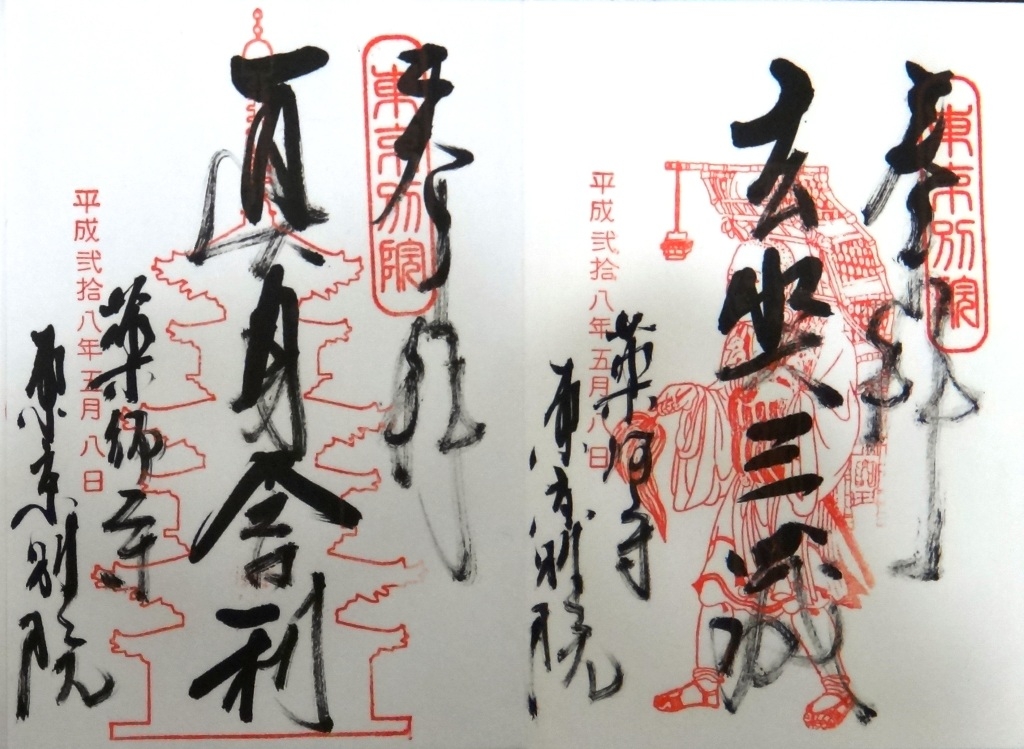 奉拝
東京別院
玄奘三蔵
平成弐拾八年五月八日
薬師寺
東京別院
奉拝
東京別院
真身舎利
平成弐拾八年五月八日
薬師寺
東京別院